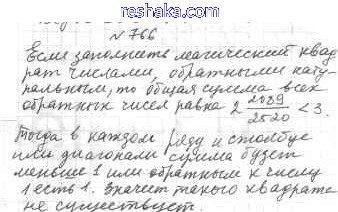 reshaka.com
№766
Если заполнить магический квад
рат числами, обратными нату
ральным, то общая сумма всех
обратных чисел равна 2 2089/2520 < 3.
Тогда в каждом ряду и столбце
или диагонали сумма будет
меньше 1 или обратным к числу
1 есть 1. Значит такого квадрата
не существует.